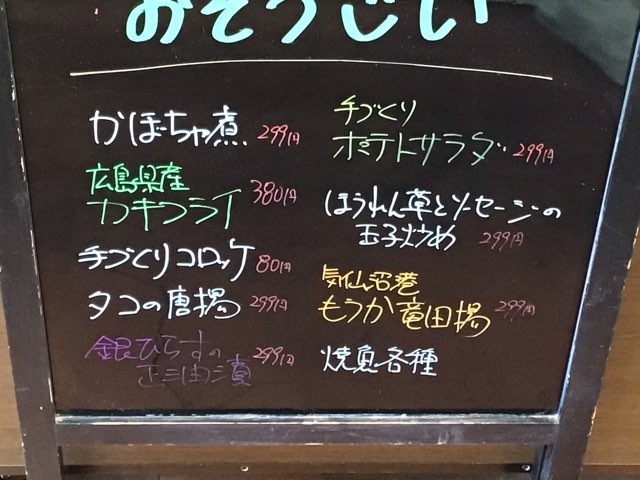 おそうじい
かぼちゃ煮 299円
広島県産
カキフライ 380円
手づくりコロッケ 80円
タコの唐揚 299円
銀ひらすの
正油漬 299円
手づくり
ポテトサラダ 299円
ほうれん草とソーセージの
玉子炒め 299円
気仙沼港
もうか竜田揚 299円
焼魚各種